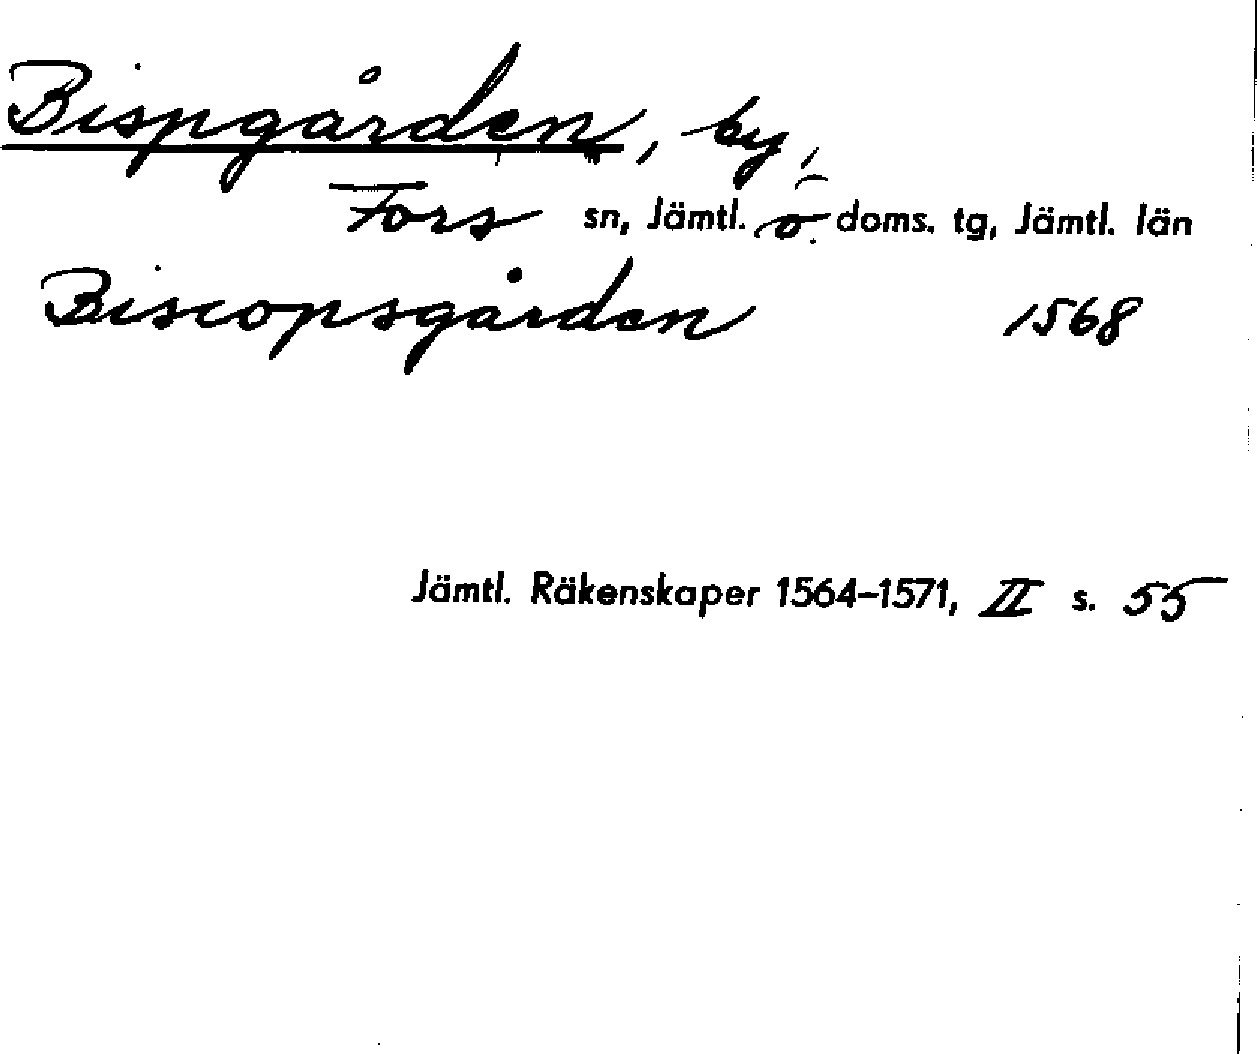 Bispgården, by,
Fors sn, Jämtl. ö. doms. tg, Jämtl. län
Biscopsgården 1568
Jämtl. Räkenskaper 1564–1571, II s. 55